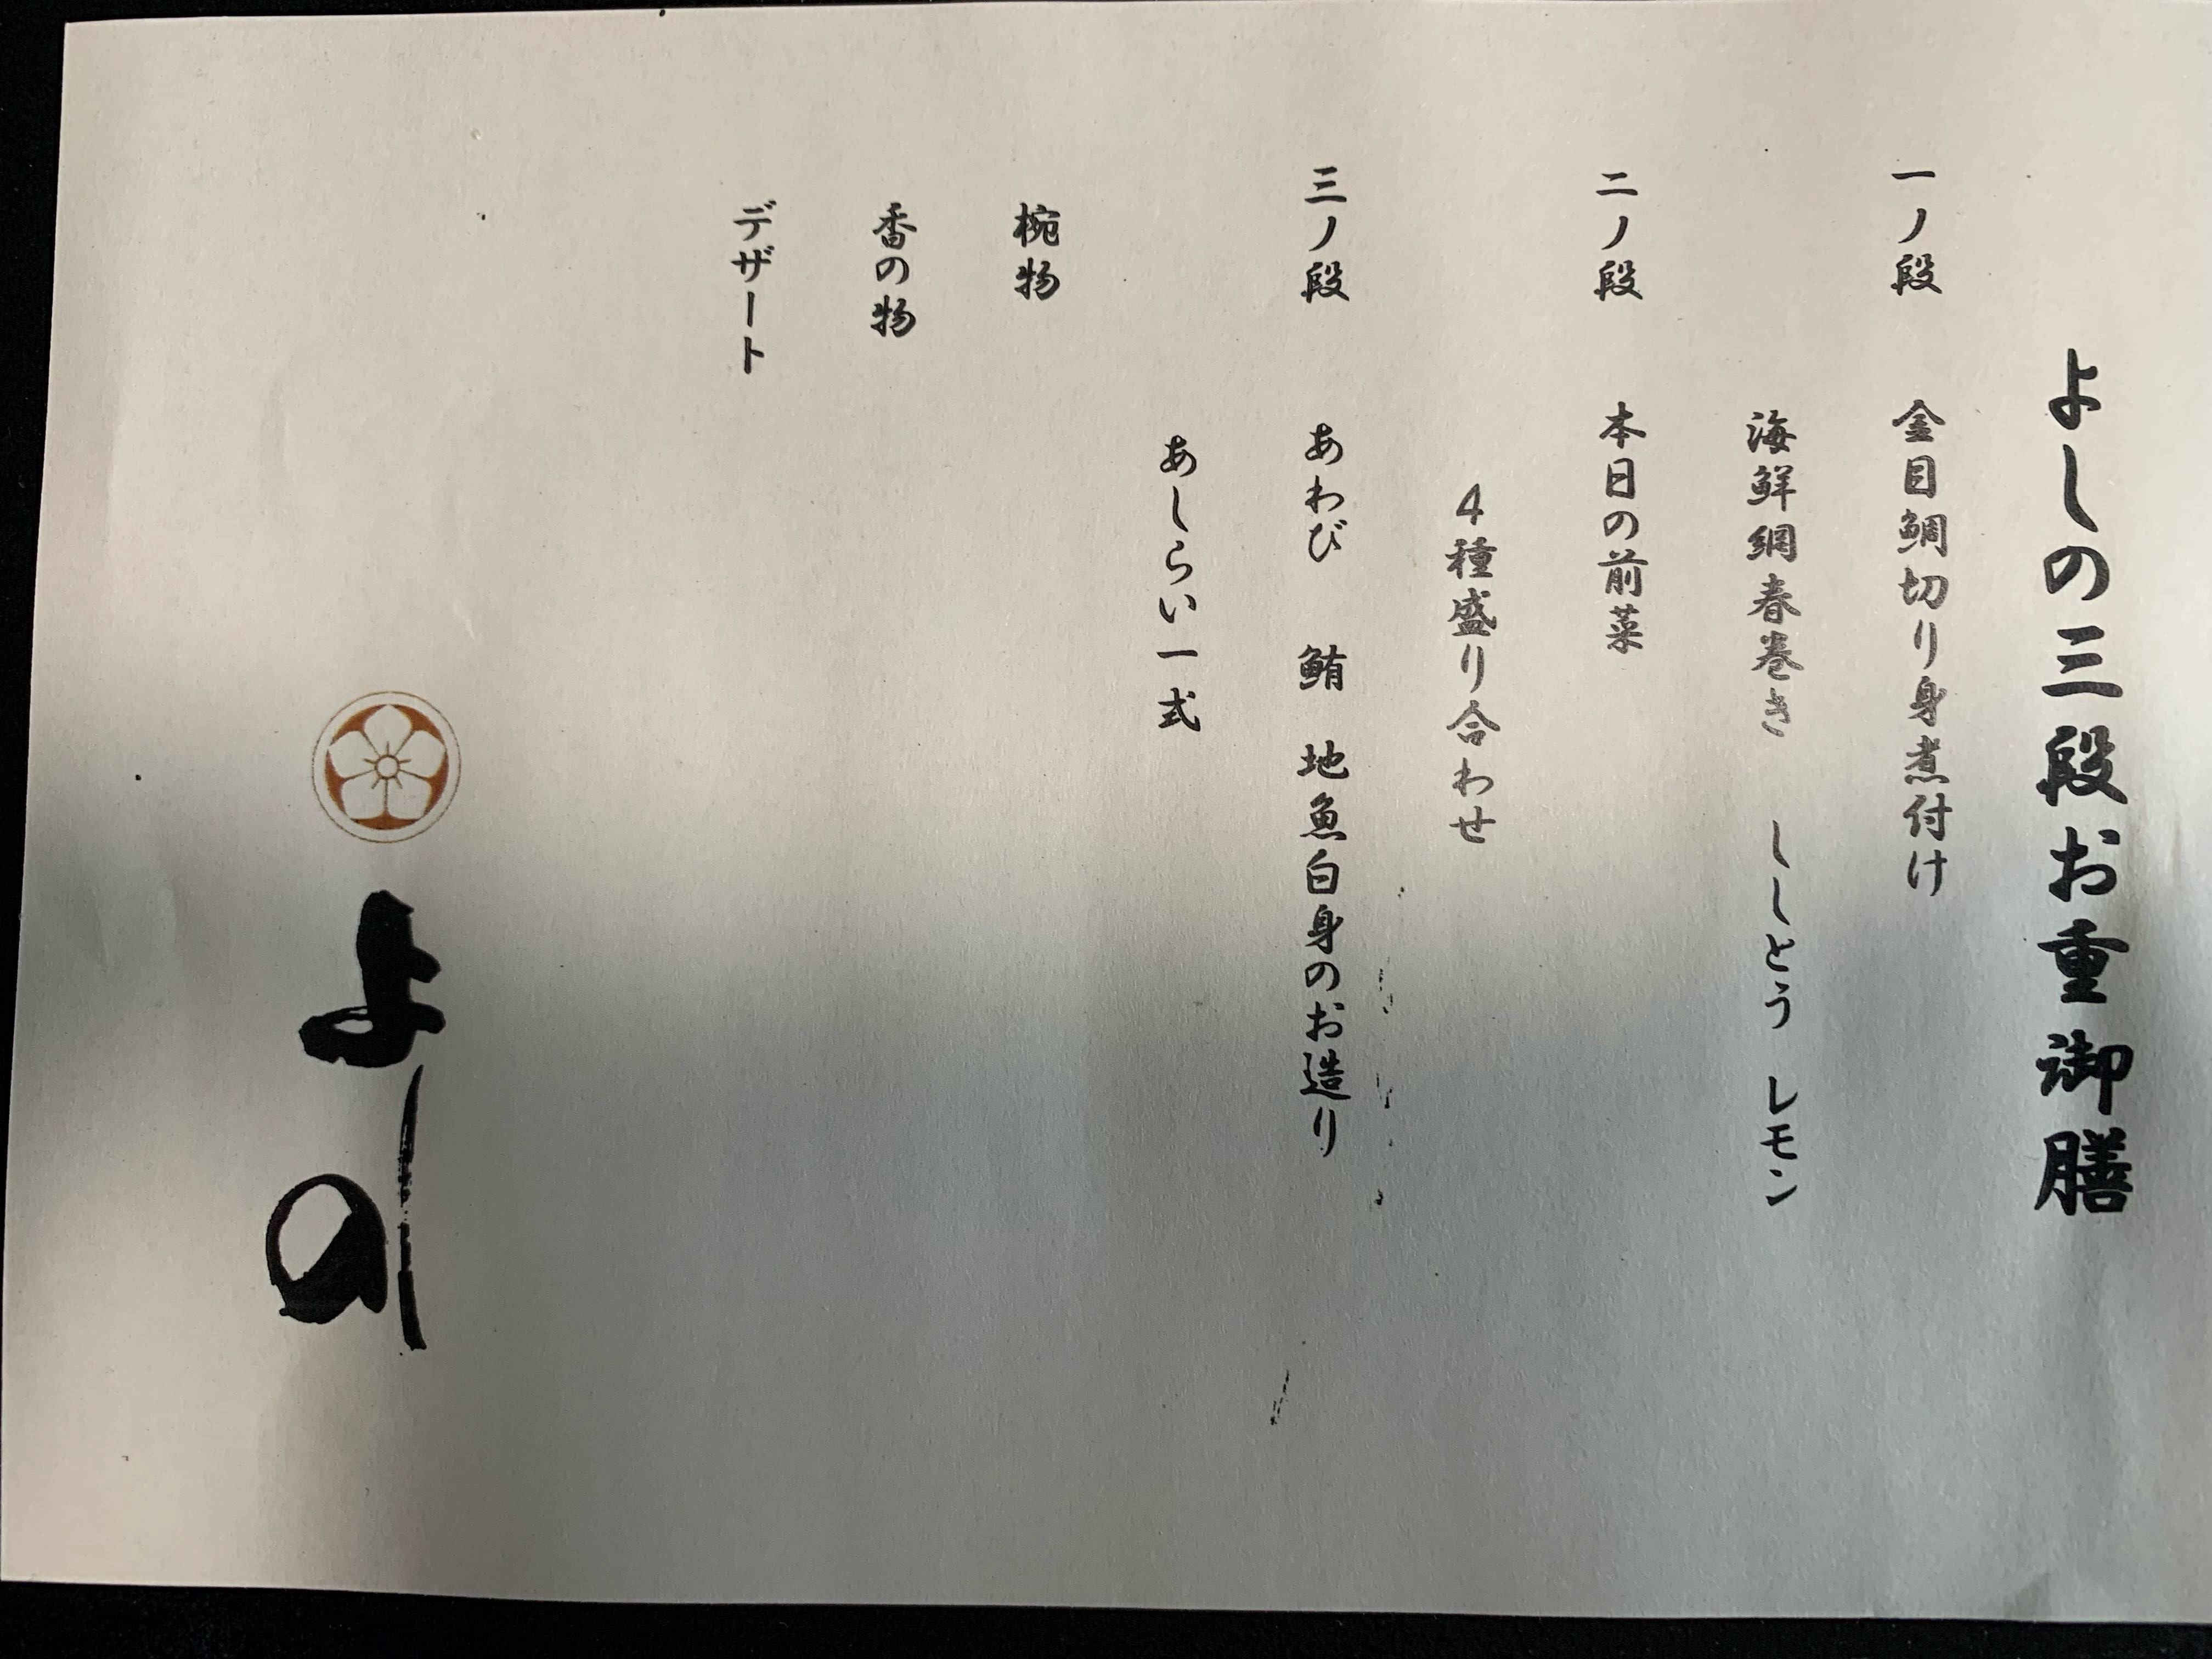 よしの三段お重御膳
一ノ段 金目鯛切り身煮付け
海鮮網春巻き ししとう レモン
二ノ段 本日の前菜
4種盛り合わせ
三ノ段 あわび 鮪 地魚白身のお造り
あしらい一式
椀物
香の物
デザート
よしの